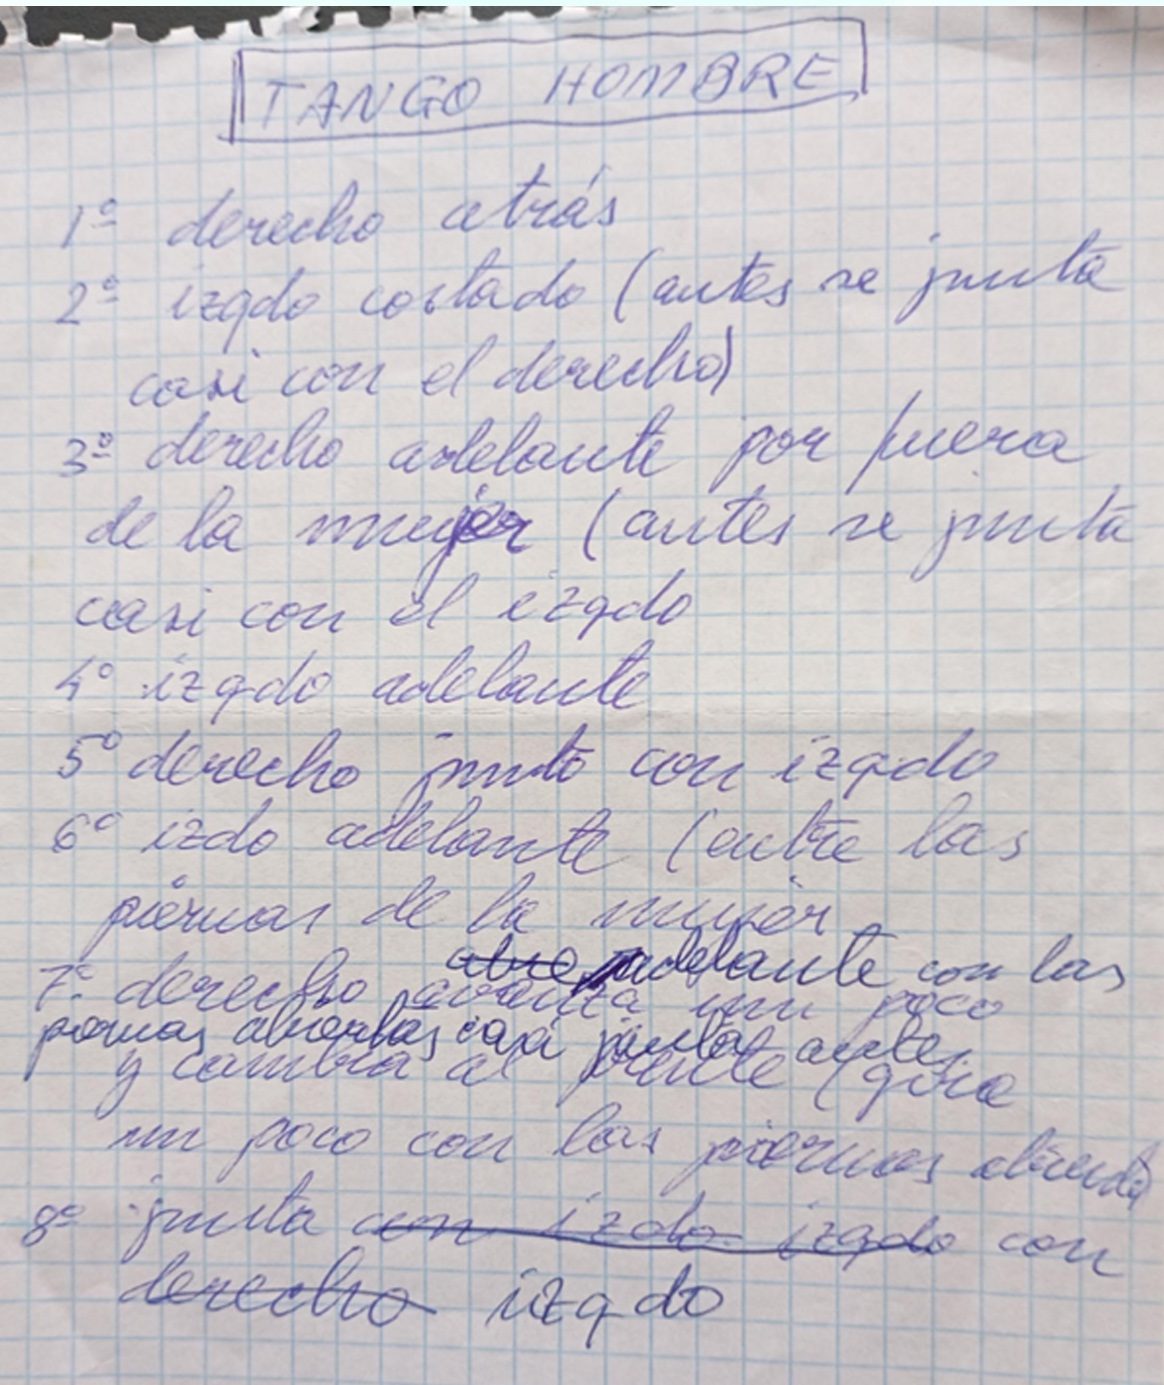 TANGO HOMBRE
1º derecho atrás
2º izqdo costado (antes se junta
casi con el derecho)
3º derecho adelante por fuera
de la mujer (antes se junta
casi con el izqdo
4º izqdo adelante
5º derecho junto con izqdo
6º izdo adelante (entre las
piernas de la mujer
abre adelante con las
7º derecho avanza un poco
piernas abiertas casi junta antes
y cambia al frente (gira
un poco con las piernas
8º junta con izdo izqdo con
derecho izqdo